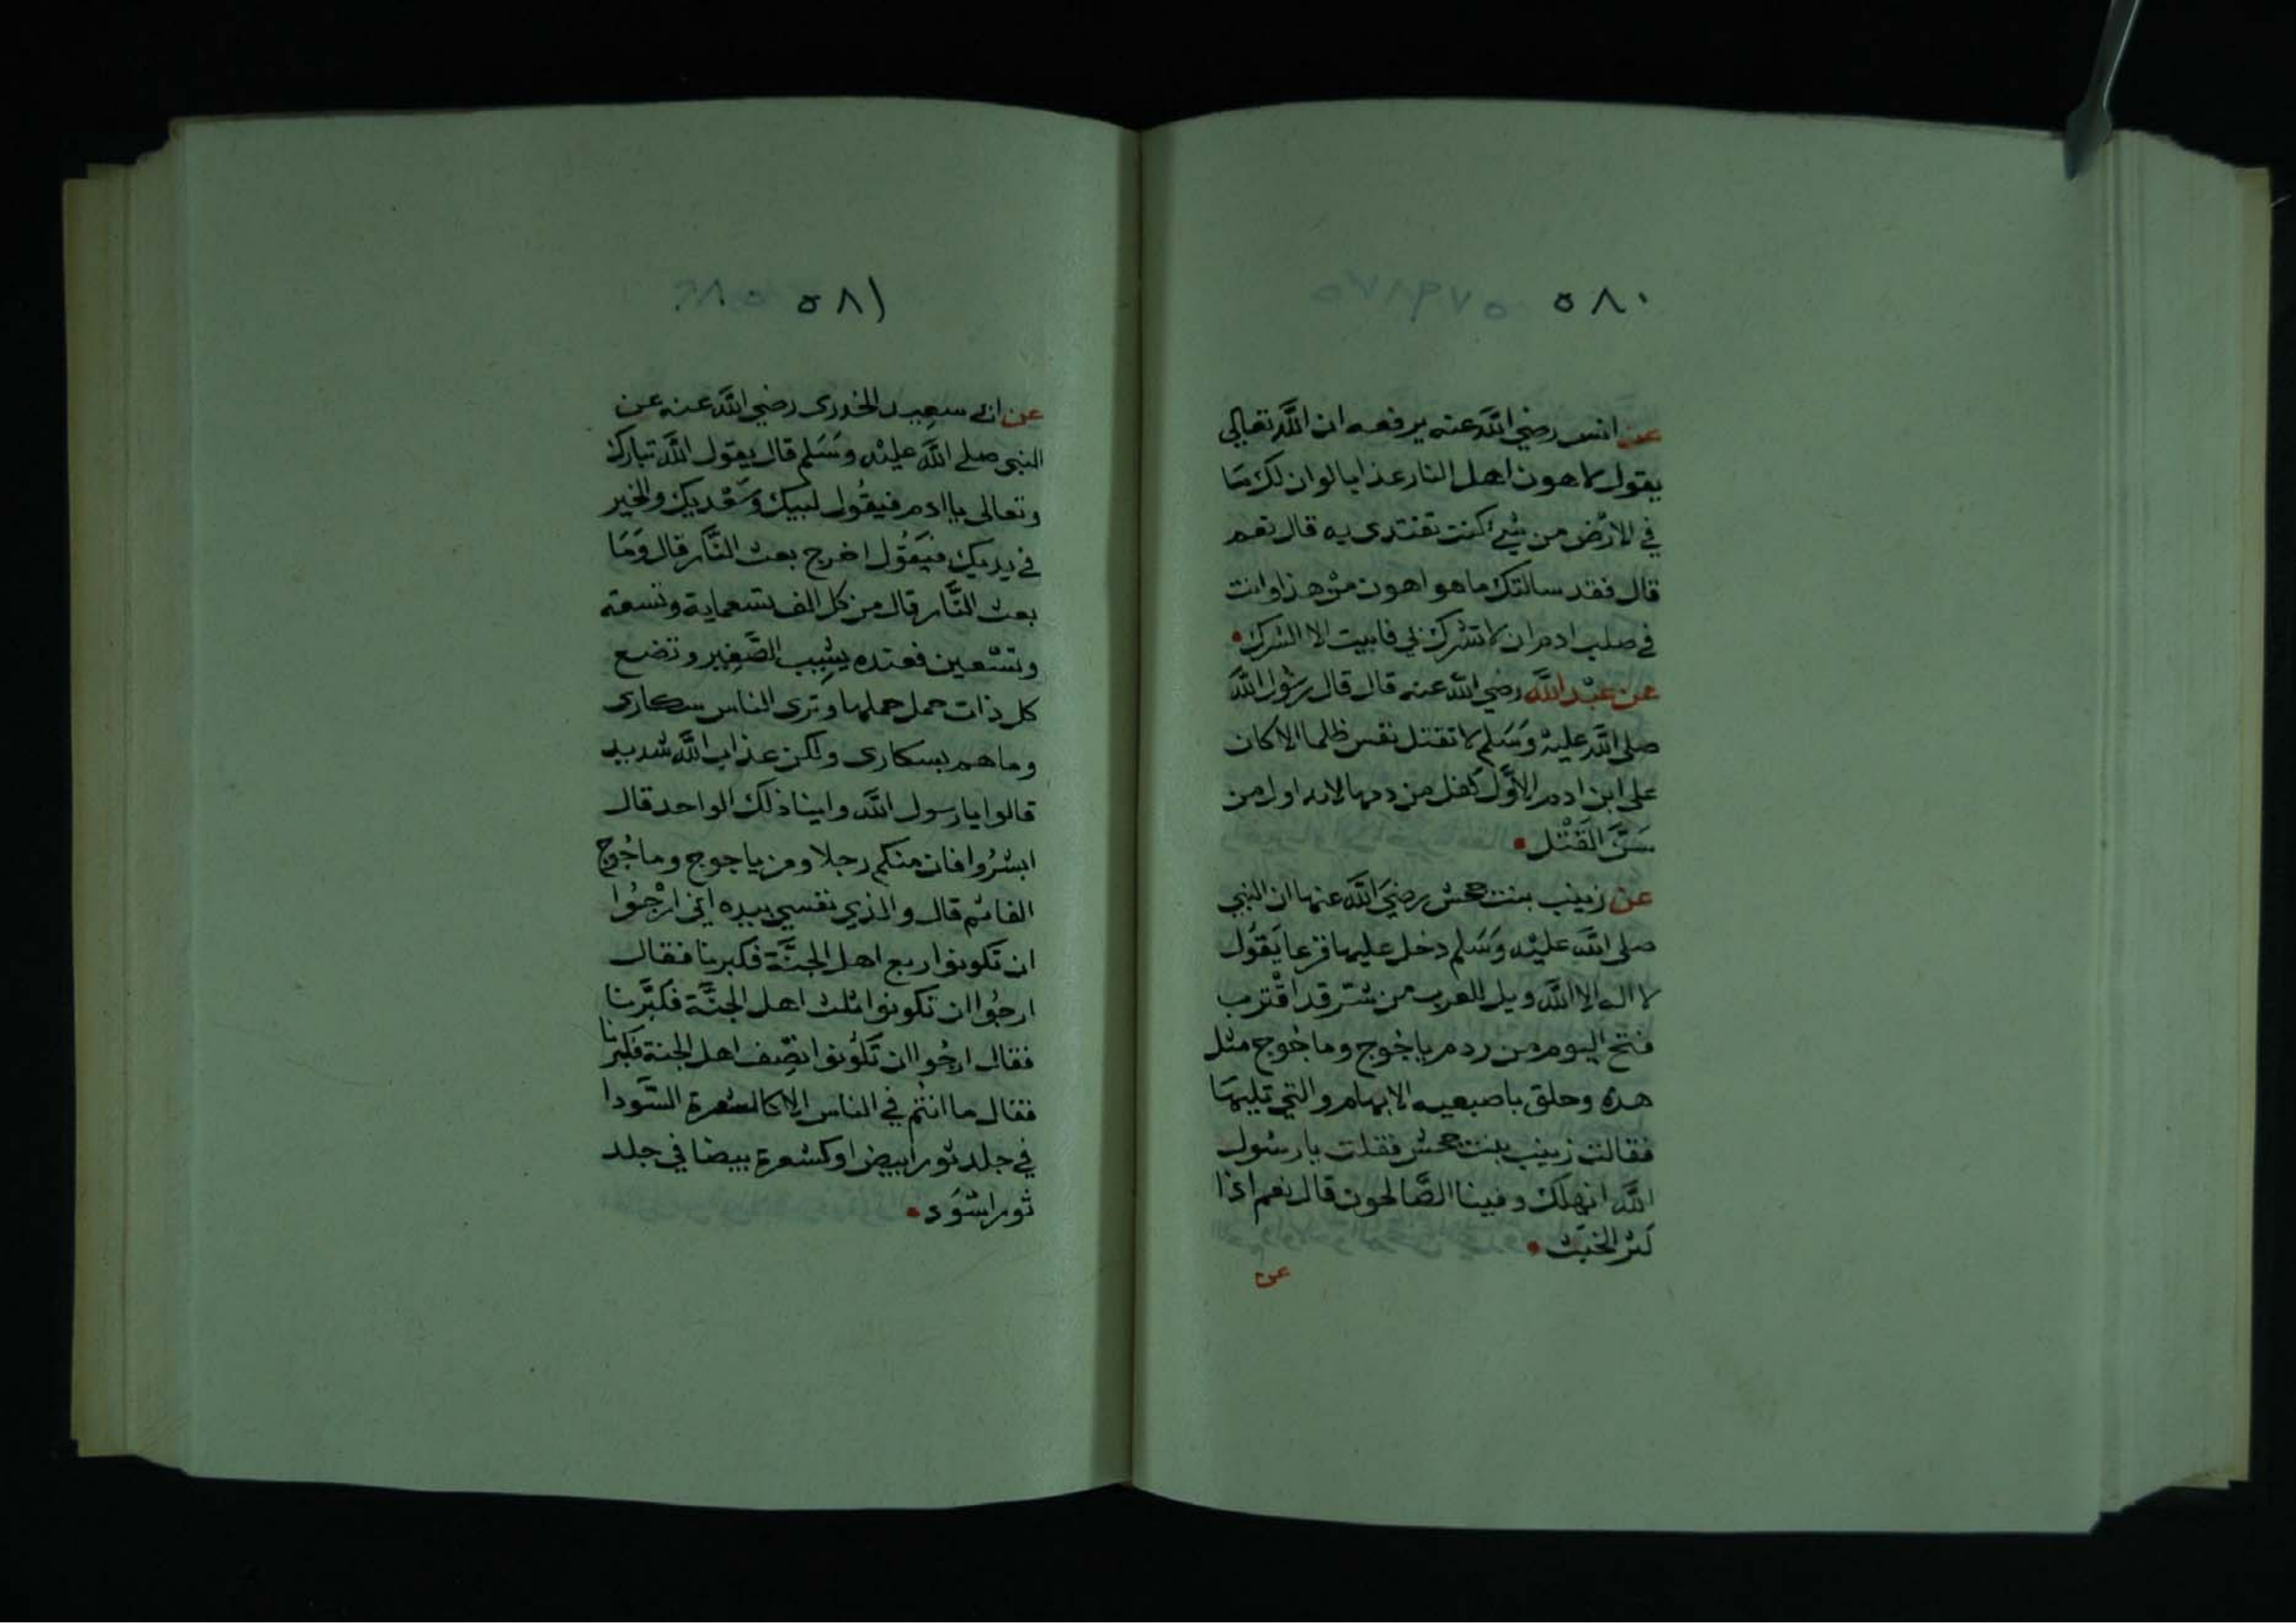 ٥٨٠
عن انس رضي الله عنه يرفعه ان الله تعالى
يقول لاهون اهل النار عذابا لو ان لك مَا
في الارْض من شيء كنت تفتدى به قال نعم
قال فقد سالتك ما هو اهون منْ هذا وانت
في صلب ادم ان لا تشرك بي فابيت الا الشرك
عن عبْد الله رضي الله عنه قال قال رسُول الله
صلى الله عليْه وَسَلم لا تقتل نفس ظلما الا كان
على ابن ادم الأوَّل كفل من دمها لانه اول من
سَنَّ القَتْل
عن زينب بنت جحش رضيَ الله عنها ان النبي
صلى الله عليْه وَسَلم دخل عليها فزعا يَقُول
لا اله الا الله ويل للعرب من شر قد اقْترب
فتح اليوم من ردم ياجُوج وماجُوج مثل
هذه وحلق باصبعيه الابهام والتي تليهَا
فقالت زينب بنت جحش فقلت يا رسُول
الله انهلك وفينا الصَّالحون قال نعم اذا
كثر الخبث
عن
٥٨١
عن ابي سعِيد الخدرى رضي الله عنه عن
النبي صلى الله عليْه وسَلم قال يقول الله تبارك
وتعالى يا ادم فيقُول لبيك وسَعْديك والخير
في يديك فيَقُول اخرج بعث النَّار قال وَمَا
بعث النَّار قال من كل الف تسعماية وتسعة
وتسْعين فعنده يشِيب الصَّغِير وتضع
كل ذات حمل حملها وترى الناس سكارى
وما هم بسكارى ولكن عذاب الله شديد
قالوا يا رسول الله واينا ذلك الواحد قال
ابشرُوا فان منكم رجلا ومن ياجوج وماجُوج
الفا ثم قال والذي نفسي بيده اني ارْجُوا
ان تكونوا ربع اهل الجنَّة فكبرنا فقال
ارجُوا ان تكونوا ثلث اهل الجنَّة فكبَّرنا
فقال ارجُوا ان تكُونوا نصْف اهل الجنة فكبرنا
فقال ما انتُم في الناس الا كالشعرة السَّودا
في جلد ثور ابيض او كشعرة بيضا في جلد
ثور اسْوَد